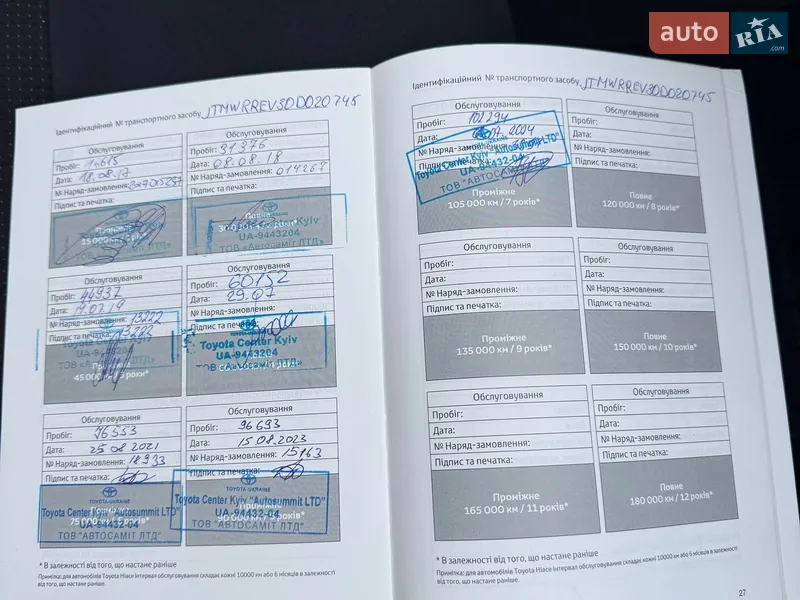 auto RIA .com
Ідентифікаційний № транспортного засобу JTMWRREV30D020745
Обслуговування
Пробіг:
Дата: 18.08.17
№ Наряд-замовлення:
Підпис та печатка:
15 000
Обслуговування
Пробіг: 31376
Дата: 08.08.18
№ Наряд-замовлення: 014267
Підпис та печатка:
Toyota Center Kyiv
UA-9443204
ТОВ «Автосаміт ЛТД»
Обслуговування
Пробіг: 44937
Дата:
№ Наряд-замовлення: 13222
Підпис та печатка: 13222
45 000
Обслуговування
Пробіг: 60152
Дата: 29.07
№ Наряд-замовлення:
Підпис та печатка:
Toyota Center Kyiv
UA-9443204
ТОВ «Автосаміт ЛТД»
Обслуговування
Пробіг: 76553
Дата: 25 08 2021
№ Наряд-замовлення: 18933
Підпис та печатка:
TOYOTA-UKRAINE
Toyota Center Kyiv "Autosummit LTD"
UA-94432-04
ТОВ "АВТОСАМІТ ЛТД"
75 000
Обслуговування
Пробіг: 96693
Дата: 15.08.2023
№ Наряд-замовлення: 15163
Підпис та печатка:
TOYOTA-UKRAINE
Toyota Center Kyiv "Autosummit LTD"
UA-94432-04
ТОВ "АВТОСАМІТ ЛТД"
90 000
* В залежності від того, що настане раніше
Примітка: для автомобілів Toyota Hiace інтервал обслуговування складає кожні 10000 км або 6 місяців в залежності
від того, що настане раніше.
Ідентифікаційний № транспортного засобу JTMWRREV30D020745
Обслуговування
Пробіг: 102294
Дата:
№ Наряд-замовлення:
Підпис та
Toyota Center Kyiv "Autosummit LTD"
UA-94432-04
ТОВ "АВТОСАМІТ
Проміжне
105 000 км / 7 років*
Обслуговування
Пробіг:
Дата:
№ Наряд-замовлення:
Підпис та печатка:
Повне
120 000 км / 8 років*
Обслуговування
Пробіг:
Дата:
№ Наряд-замовлення:
Підпис та печатка:
Проміжне
135 000 км / 9 років*
Обслуговування
Пробіг:
Дата:
№ Наряд-замовлення:
Підпис та печатка:
Повне
150 000 км / 10 років*
Обслуговування
Пробіг:
Дата:
№ Наряд-замовлення:
Підпис та печатка:
Проміжне
165 000 км / 11 років*
Обслуговування
Пробіг:
Дата:
№ Наряд-замовлення:
Підпис та печатка:
Повне
180 000 км / 12 років*
* В залежності від того, що настане раніше
Примітка: для автомобілів Toyota Hiace інтервал обслуговування складає кожні 10000 км або 6 місяців в залежності
від того, що настане раніше.
27